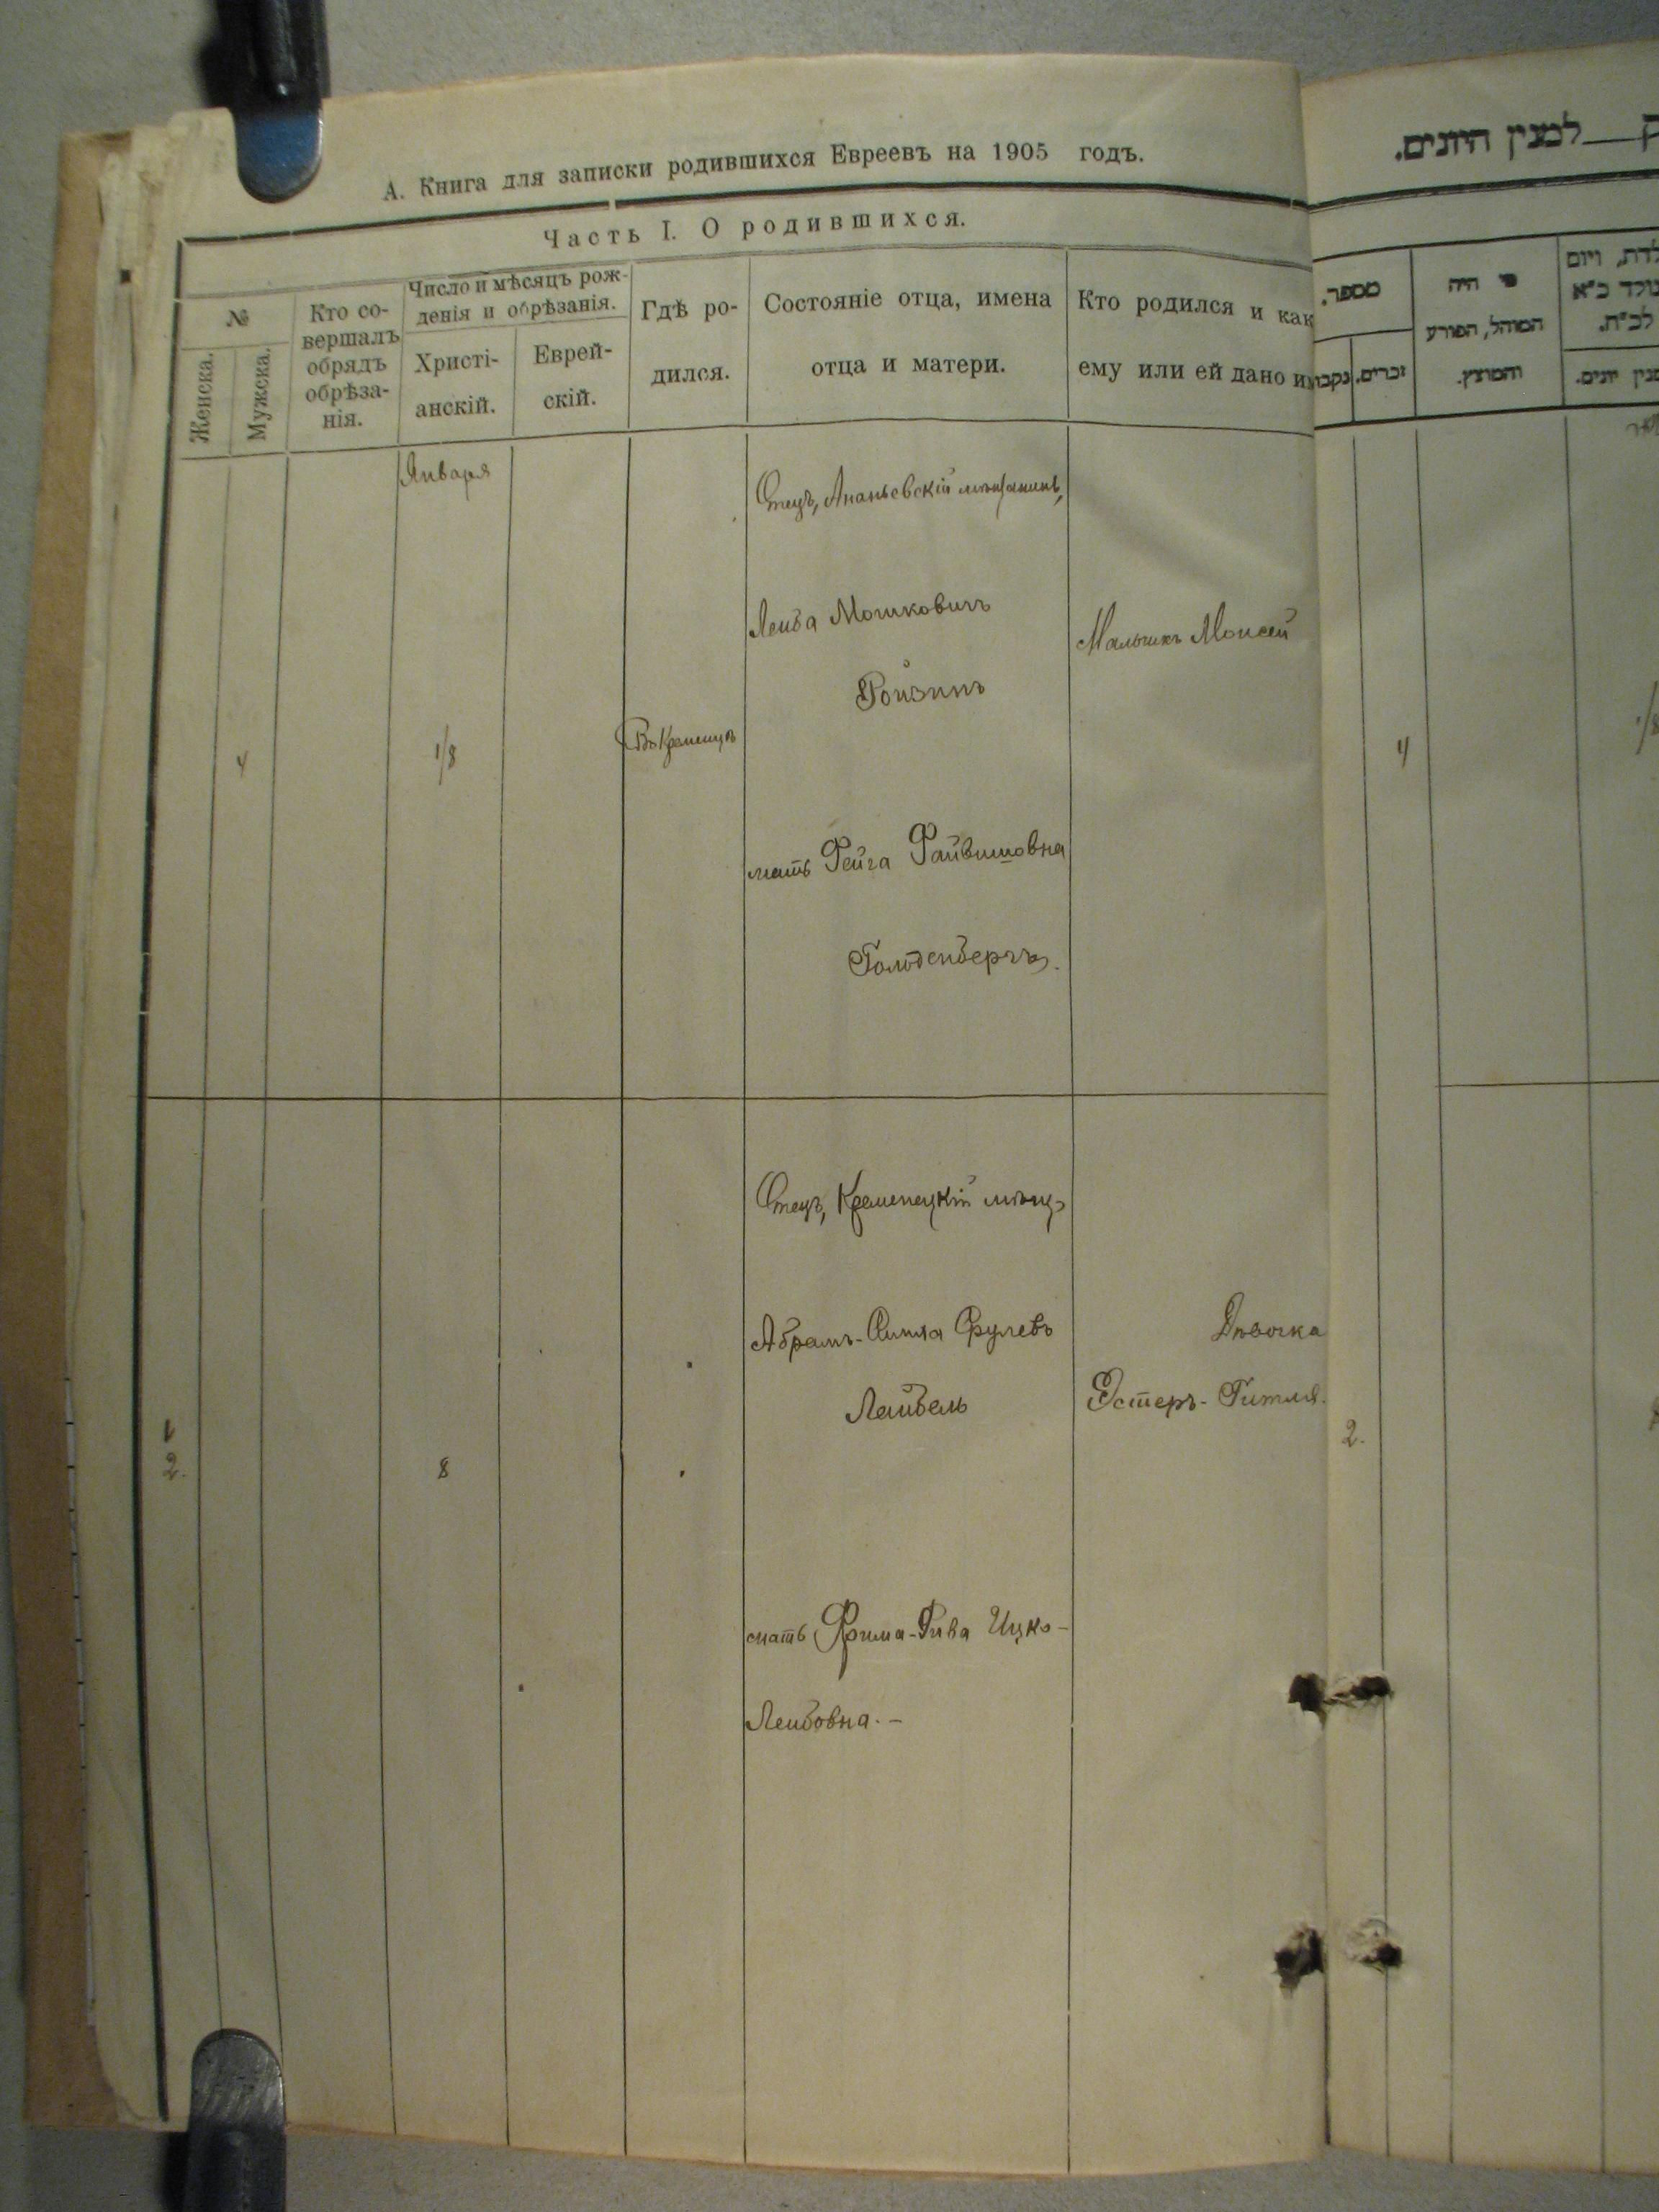 А. Книга для записки родившихся Евреевъ на 1905 годъ.
Часть I. О родившихся.
№
Женска.
Мужска.
Кто со-
вершалъ
обрядъ
обрѣза-
нія.
Число и мѣсяцъ рож-
денія и обрѣзанія.
Христі-
анскій.
Еврей-
скій.
Гдѣ ро-
дился.
Состояніе отца, имена
отца и матери.
Кто родился и как
ему или ей дано им
Января
4
1/8
Въ Кременцѣ
Отецъ, Ананьевскій мѣщанинъ,
Лейба Мошковичъ
Ройзинъ
мать Фейга Файвишовна
Гольденбергъ.
Мальчикъ Моисей
2.
8
Отецъ, Кременецкій мѣщ.
Абрамъ- Сруль
Лейбель
мать Фрима-Рива Ицко-
Лейбовна.-
Дѣвочка
Эстеръ- Гитля.
למנין היונים.
מספר.
זכרים.
נקבות
מי היה
המוהל, הפורע
והמוצץ.
לדת, ויום
נולד כ"א
לב"ח.
מנין יונים.
4
2.